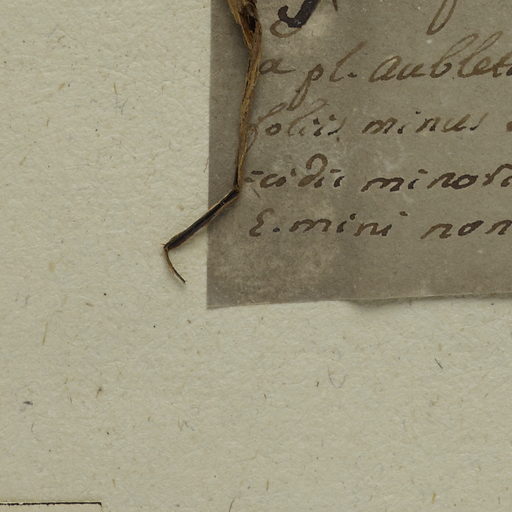 a pl. aublet
foliis minus
minori
E. mini non